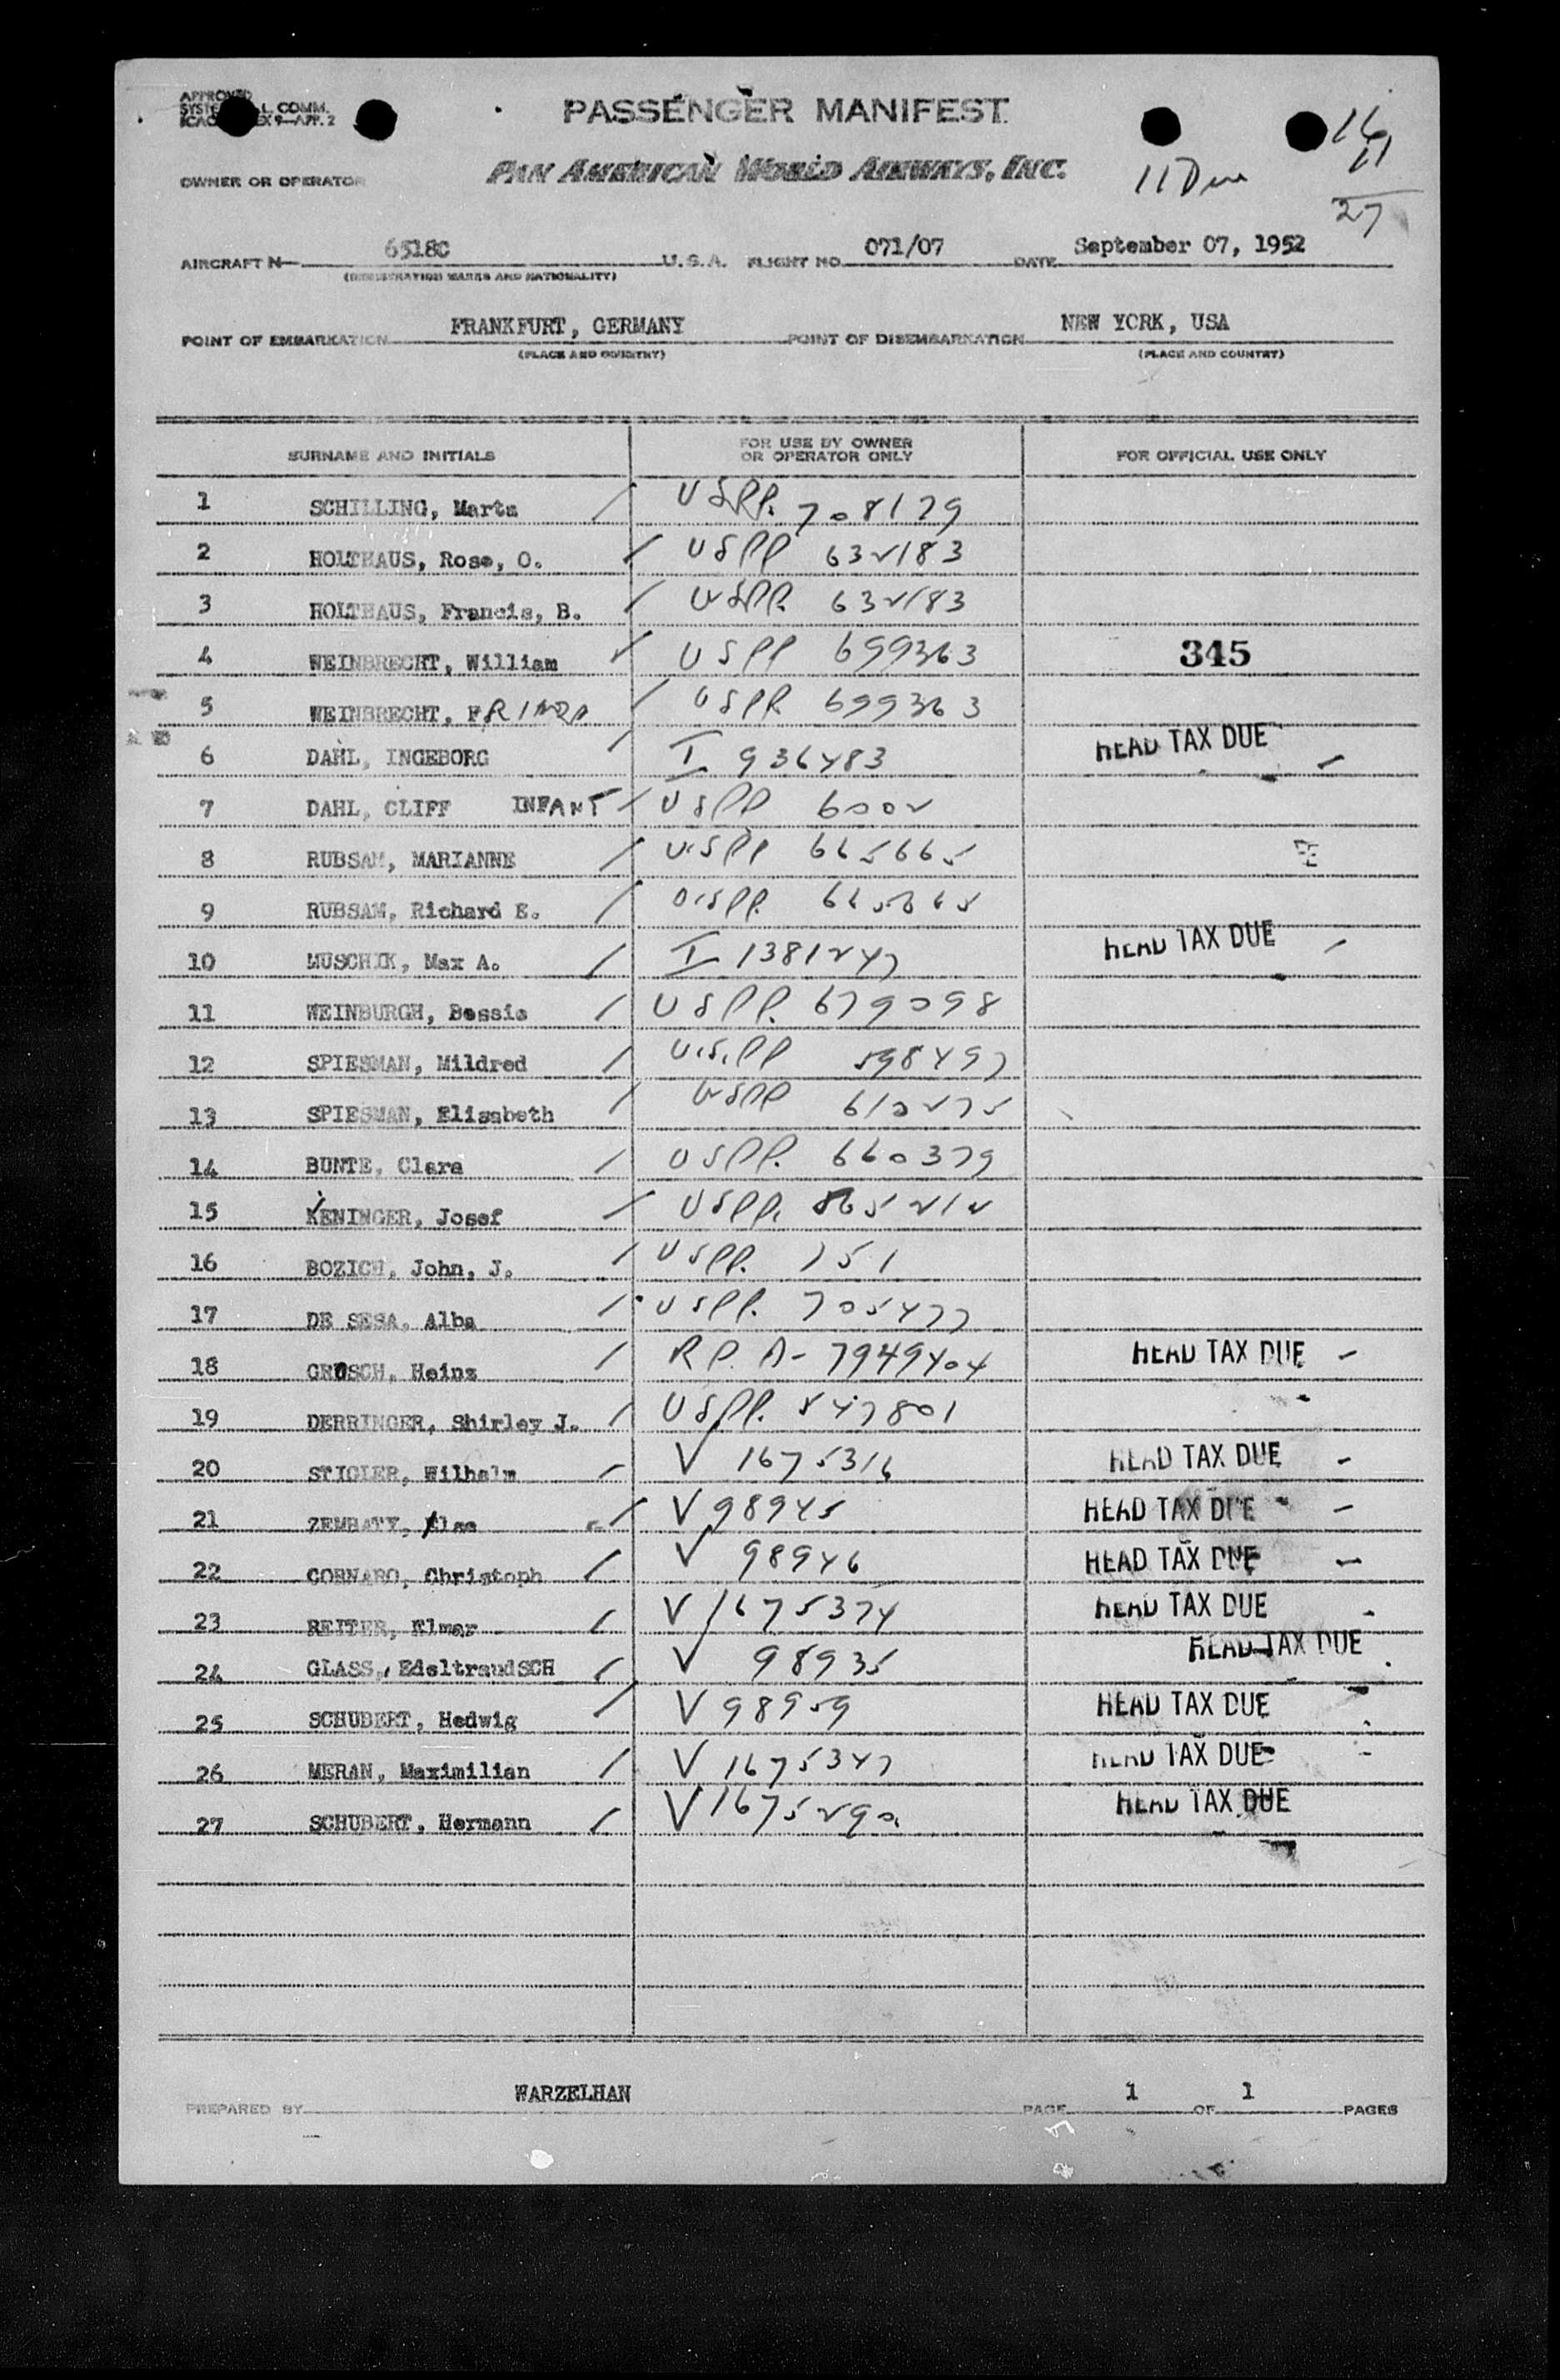 APPROVED
PASSENGER MANIFEST
16
11
11 Due
27
OWNER OR OPERATOR PAN AMERICAN WORLD AIRWAYS, INC.
AIRCRAFT N 6518C U.S.A. FLIGHT NO. 071/07 DATE September 07, 1952
(REGISTRATION MARKS AND NATIONALITY)
POINT OF EMBARKATION FRANKFURT, GERMANY POINT OF DISEMBARKATION NEW YORK, USA
(PLACE AND COUNTRY) (PLACE AND COUNTRY)
SURNAME AND INITIALS FOR USE BY OWNER OR OPERATOR ONLY FOR OFFICIAL USE ONLY
1 SCHILLING, Marta USPP. 708179
2 HOLTHAUS, Rose, O. USPP 632183
3 HOLTHAUS, Francis, B. USPP. 632183
4 WEINBRECHT, William USPP 699363 345
5 WEINBRECHT, USPP 699363
6 DAHL, INGEBORG I 936483 HEAD TAX DUE
7 DAHL, CLIFF INFANT USPP 6002
8 RUBSAM, MARIANNE U.SPP 665665
9 RUBSAM, Richard E. U.SPP. 665665
10 MUSCHIK, Max A. I 1381247 HEAD TAX DUE
11 WEINBURGH, Bessie USPP. 679098
12 SPIESMAN, Mildred U.S.PP 598497
13 SPIESMAN, Elisabeth USPP
14 BUNTE, Clara USPP. 660379
15 KENINGER, Josef USPP. 865212
16 BOZICH, John, J. USPP. 151
17 DE SESA, Alba USPP. 705477
18 GROSCH, Heinz R.P. A-7949404 HEAD TAX DUE
19 DERRINGER, Shirley J. USPP. 547801
20 STIGLER, Wilhelm V 1675316 HEAD TAX DUE
21 ZEMBATY, Else V 98945 HEAD TAX DUE
22 CORNARO, Christoph V 98946 HEAD TAX DUE
23 REITER, Elmar V 1675374 HEAD TAX DUE
24 GLASS, EdeltraudSCH V 98935 HEAD TAX DUE
25 SCHUBERT, Hedwig V 98959 HEAD TAX DUE
26 MERAN, Maximilian V 1675347 HEAD TAX DUE
27 SCHUBERT, Hermann V 1675290 HEAD TAX DUE
PREPARED BY WARZELHAN PAGE 1 OF 1 PAGES